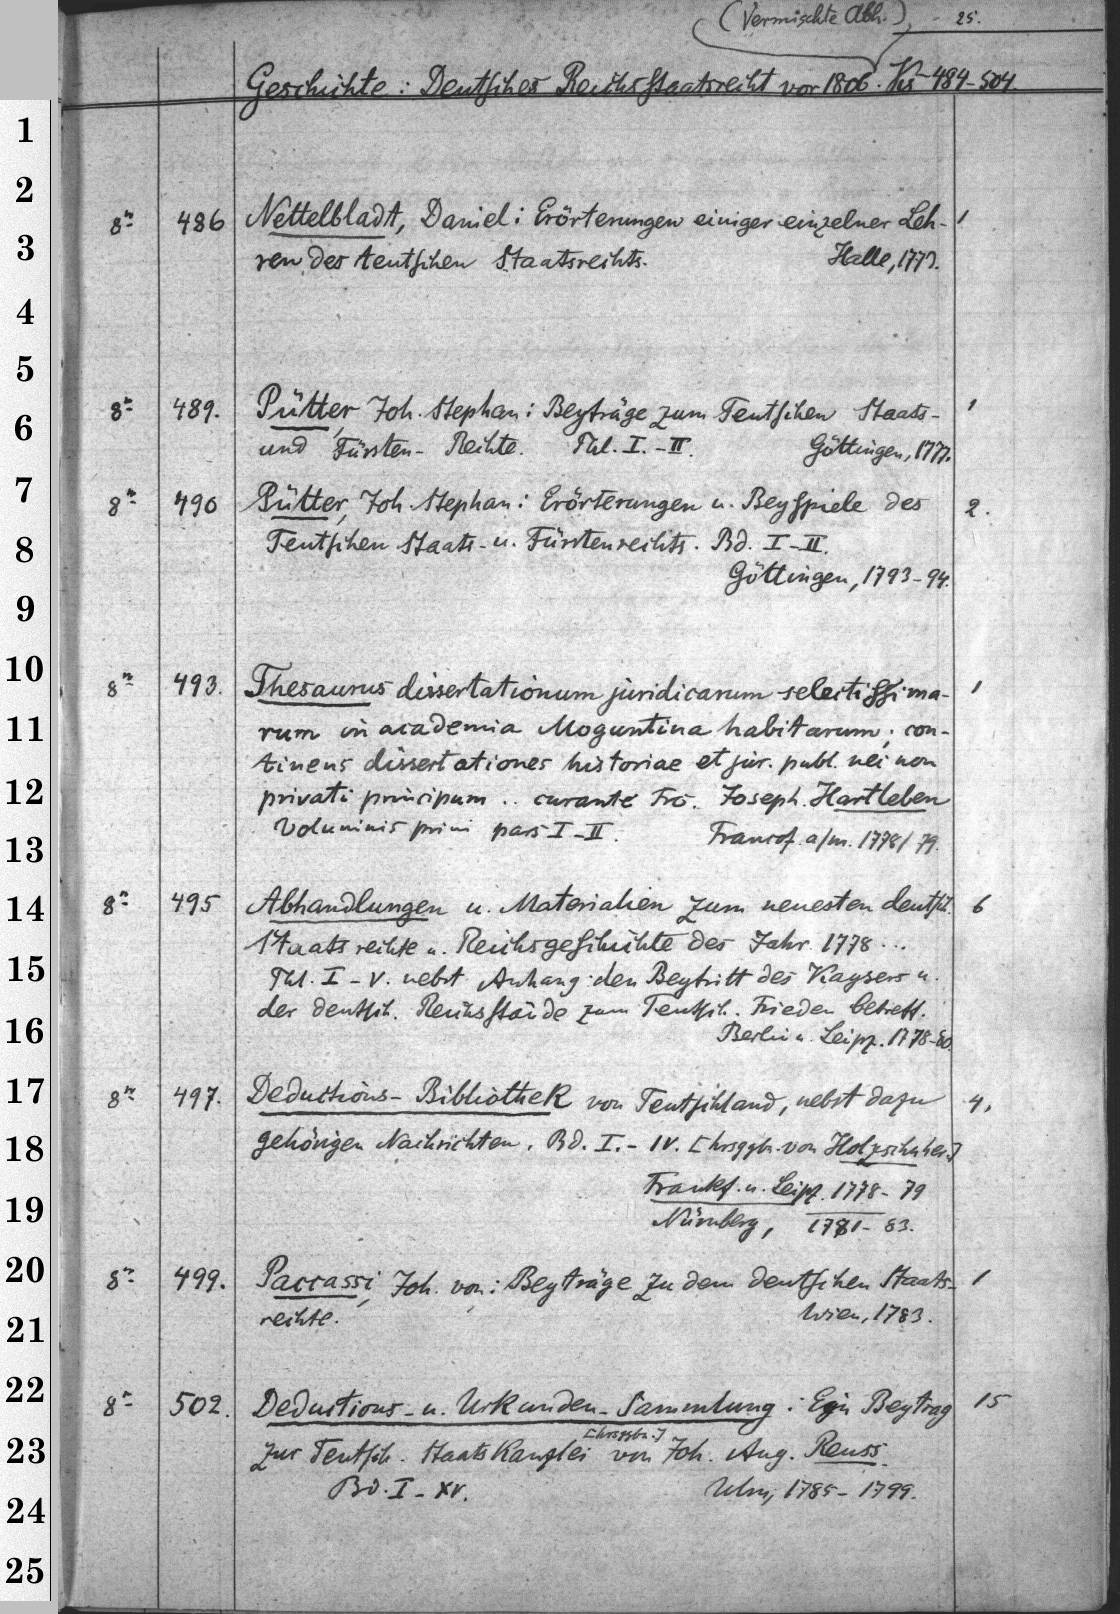 (Vermischte Abh.) - 25.
Geschichte: Deutsches Reichsstaatsrecht vor 1806. Hs 484-504.
1
2
8º 486 Nettelbladt, Daniel: Erörterungen einiger einzelner Leh- 1
3
ren des teutschen Staatsrechts. Halle, 1773.
4
5
8º 489. Pütter, Joh. Stephan: Beyträge zum Teutschen Staats- 1
6
und Fürsten-Rechte. Thl. I.-II. Göttingen, 1777.
7
8º 490 Pütter, Joh. Stephan: Erörterungen u. Beyspiele des 2.
8
Teutschen Staats- u. Fürstenrechts. Bd. I-II.
Göttingen, 1793-94.
9
10
8º 493. Thesaurus dissertationum juridicarum selectissima- 1
11
rum in academia Moguntina habitarum; con-
tinens dissertationes historiae et jur. publ. nec non
12
privati principum .. curante Frc. Joseph. Hartleben
Voluminis primi pars I-II. Francof. a/m. 1778/79.
13
14
8º 495 Abhandlungen u. Materialien zum neuesten deutsch. 6
Staatsrechte u. Reichsgeschichte des Jahr. 1778...
15
Thl. I-V. nebst Anhang den Beytritt des Kaysers u.
der deutsch. Reichsstände zum Teutsch. Frieden betreff.
16
Berlin u. Leipz. 1778-80.
17
8º 497. Deductions-Bibliothek von Teutschland, nebst dazu 4.
18
gehörigen Nachrichten. Bd. I.-IV. [hrsggbn. von Holzschuher.]
Frankf. u. Leipz. 1778-79
19
Nürnberg, 1781-83.
20
8º 499. Paccassi, Joh. von: Beyträge zu dem deutschen Staats- 1
21
rechte. Wien, 1783.
22
8º 502. Deductions- u. Urkunden-Sammlung: Ein Beytrag 15
[hrsggbn.]
23
zur Teutsch. Staatskanzlei von Joh. Aug. Reuss.
Bd. I-XV. Ulm, 1785-1799.
24
25